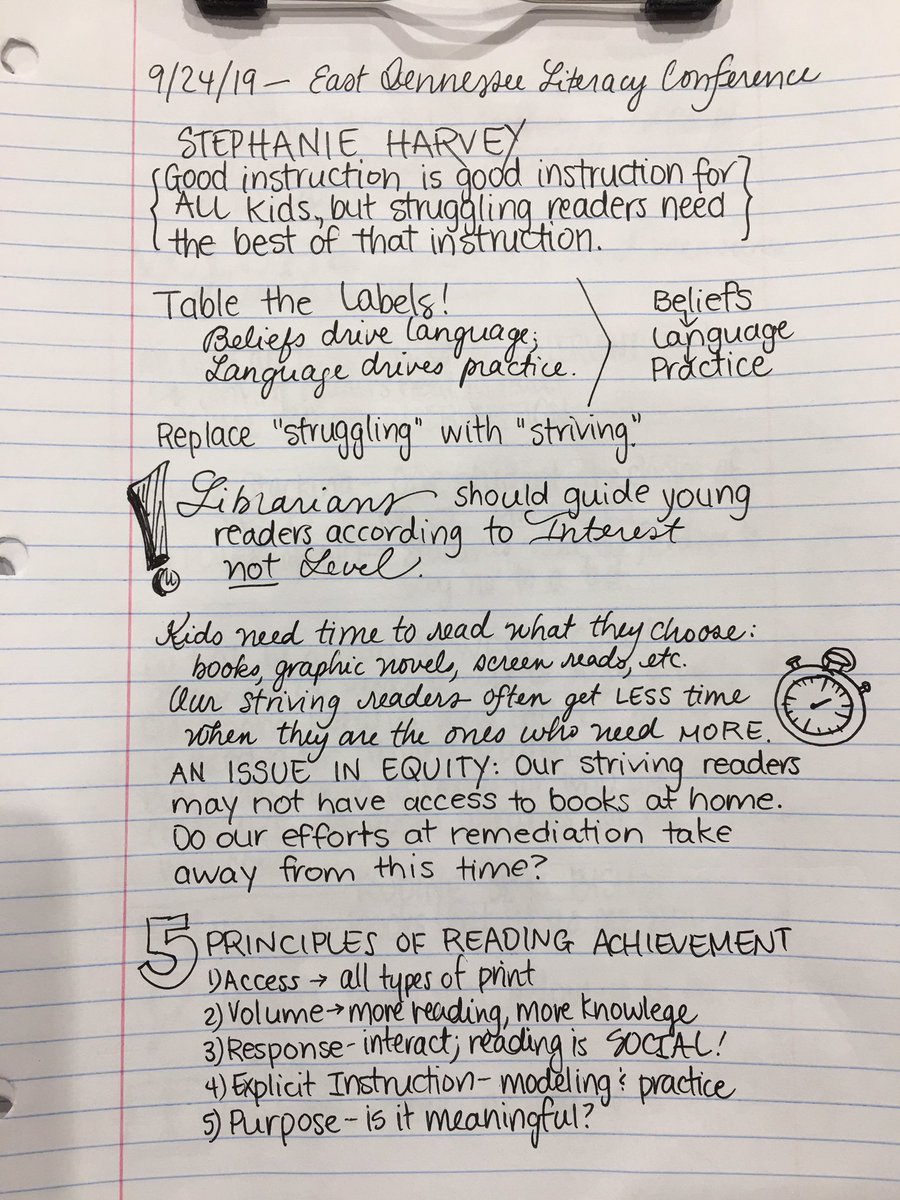 9/24/19 – East Tennessee Literacy Conference
STEPHANIE HARVEY
Good instruction is good instruction for
ALL kids, but struggling readers need
the best of that instruction.
Table the Labels!
Beliefs drive language;
Language drives practice.
Beliefs
Language
Practice
Replace "struggling" with "striving."
! Librarians should guide young
readers according to Interest
not Level.
Kids need time to read what they choose:
books, graphic novels, screen reads, etc.
Our striving readers often get LESS time
when they are the ones who need MORE.
AN ISSUE IN EQUITY: Our striving readers
may not have access to books at home.
Do our efforts at remediation take
away from this time?
5 PRINCIPLES OF READING ACHIEVEMENT
1) Access → all types of print
2) Volume → more reading, more knowlege
3) Response - interact; reading is SOCIAL!
4) Explicit Instruction - modeling & practice
5) Purpose - is it meaningful?